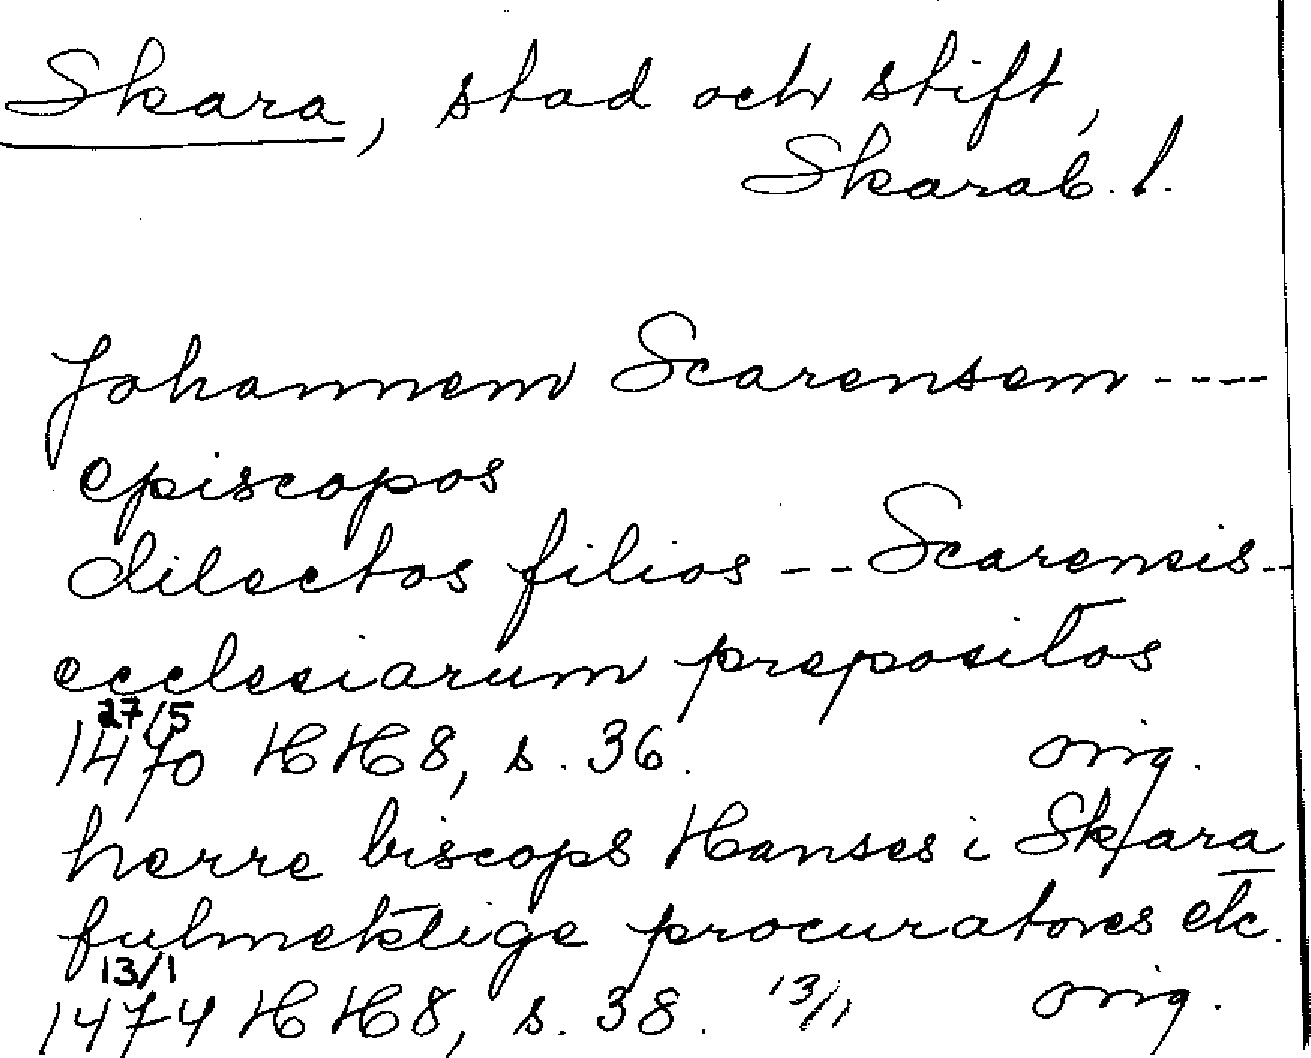 Skara, stad och stift,
Skarab. l.
Johannem Scarensem ----
episcopos
dilectos filios -- Scarensis --
ecclesiarum prepositos
27/5
1470 HH8, s. 36. orig.
herre biscops Hanses i Skara
fulmektige procuratores etc.
13/1
1474 HH8, s. 38. 13/1 orig.